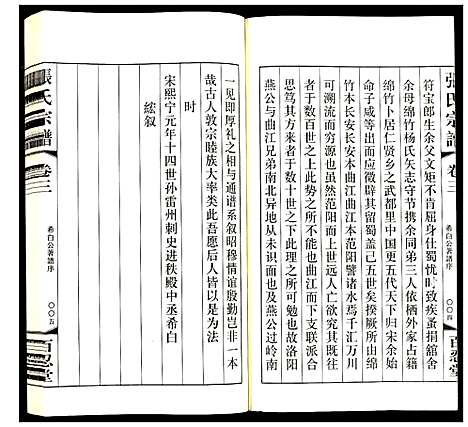 張氏宗譜
卷三
希白公著譜序
〇〇四
百忍堂
符宝郎生余父文矩不肯屈身仕蜀忧时致疾蚤捐舘舍
余母绵竹杨氏矢志守节携余同弟三人依栖外家占籍
绵竹卜居仁贤乡之武都里中国更五代天下归宋余始
命子咸等出而应徵辟其留蜀盖己五世矣揆厥所由绵
竹本长安长安本曲江曲江本范阳譬诸水焉千汇万川
可溯流而穷源也虽然范阳而上世远年人欲究其既往
者于数百世之上此势之所不能也曲江而下支联派合
思笃其方来者于数十世之下此情之所不容己也故洛阳
燕公与曲江兄弟南北异地从未识面也及燕公过岭南
一见即厚礼之相与通谱系叙昭穆情谊殷勤岂非一本
哉古人敦宗睦族大率类此吾愿后人皆以是为法
时
宋熙宁元年十四世孙雷州刺史进秩殿中丞希白
綋叙
張氏宗譜
卷三
希白公著譜序
〇〇五
百忍堂